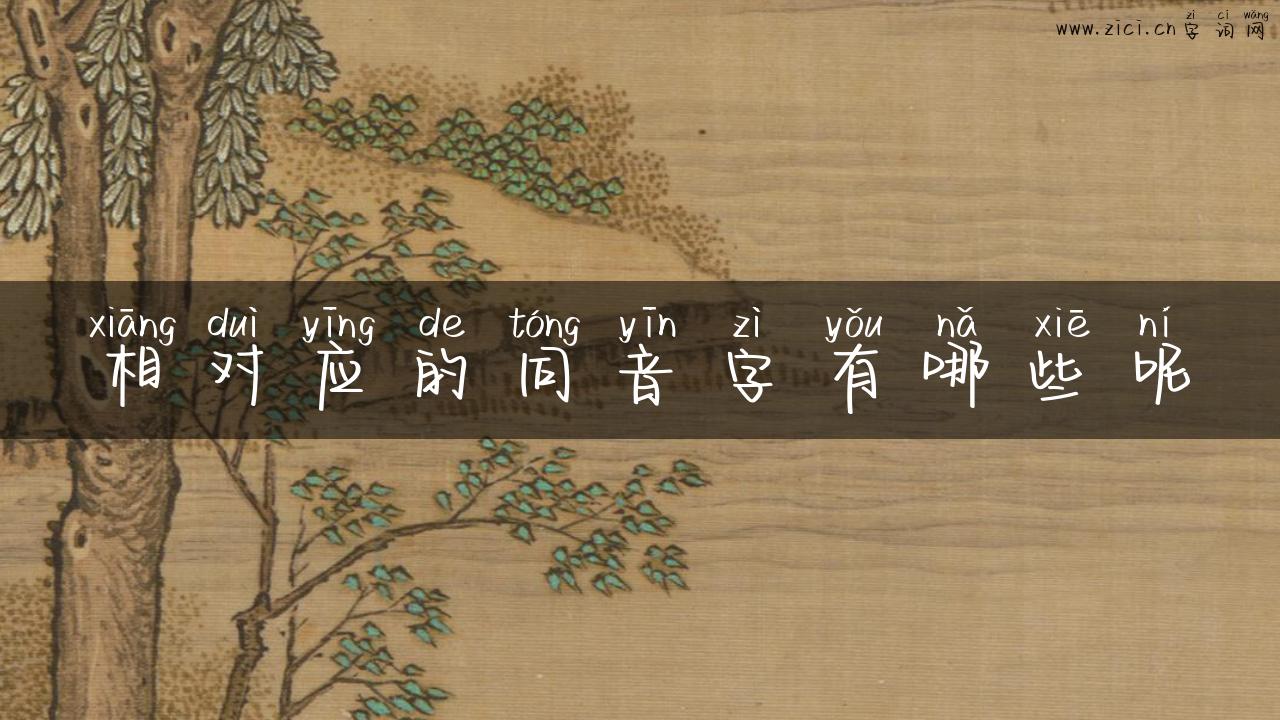 zì cí wǎng
www.zici.cn 字词网
xiāng duì yīng de tóng yīn zì yǒu nǎ xiē ní
相对应的同音字有哪些呢